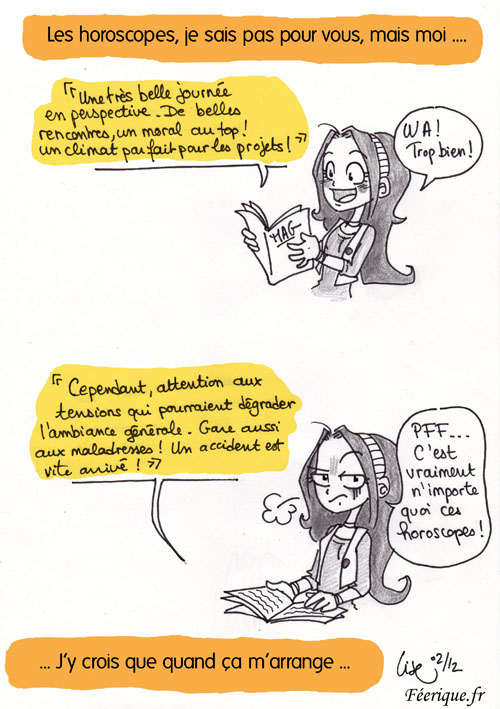 Les horoscopes, je sais pas pour vous, mais moi ....
"Une très belle journée
en perspective. De belles
rencontres, un moral au top!
un climat parfait pour les projets!"
WA!
Trop bien!
MAG
"Cependant, attention aux
tensions qui pourraient dégrader
l'ambiance générale. Gare aussi
aux maladresses! Un accident est
vite arrivé!"
PFF...
C'est
vraiment
n'importe
quoi ces
horoscopes!
... J'y crois que quand ça m'arrange ...
Lise 02/12
Féerique.fr